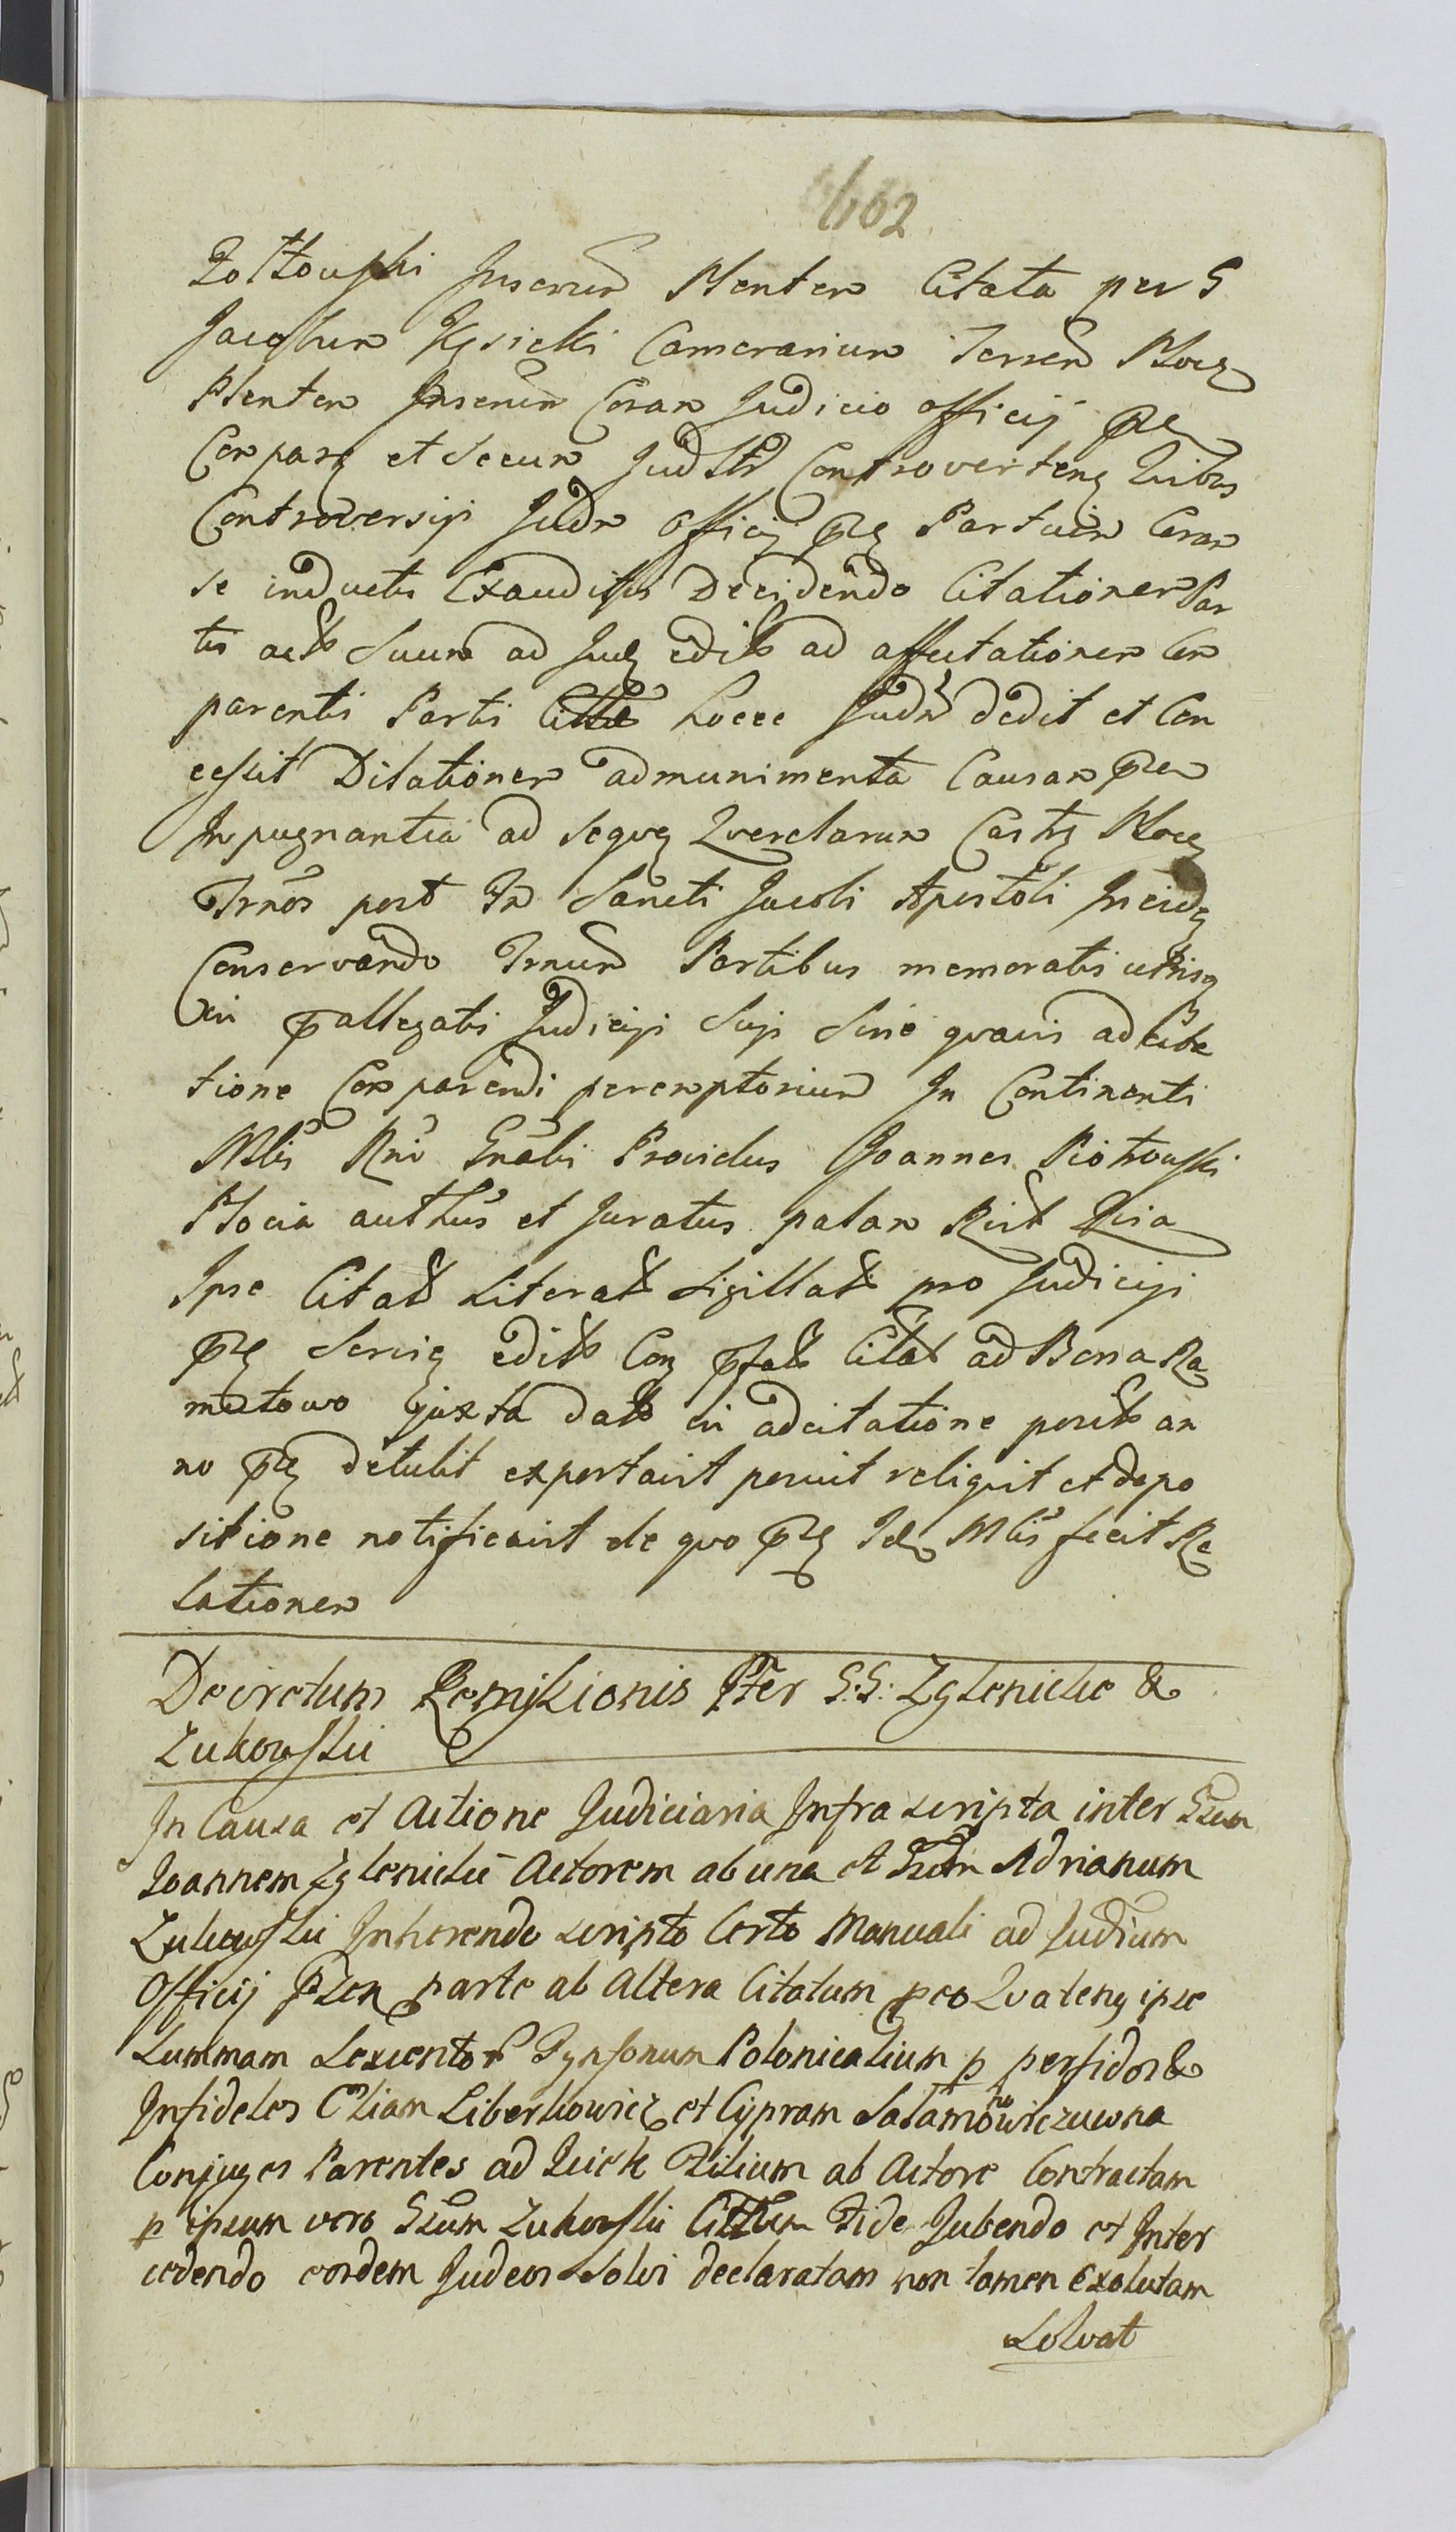 602
Zołtowski Inserum Plenten Citata per G
Jacobum Kęsicki Camerarium Terren Plocen
Plenten Inserum Coram Judicio officij pn
Comparen et Secum Judltr Controverten Quibus
Controversijs Judm Officij pn Partium Coram
se inductis Exauditis Decidendo Citationem Par
tis act Suum ad Jud edit ad affectationem Com
parentis Partis Citte hocce Judm dedit et Con
cessit Dilationem ad munimenta Causam pn
Impugnantia ad seqven Querelarum Castren Plocen
Trnos post Fm Sancti Jacobi Apostoli Inciden
Conservando Trnum Partibus memoratis utrisq
in pallegatis Judicijs Suis Sine quavis adcita
tione Comparendi peremptorium In Continenti
Mlis Rni Gnalis Providus Joannes Piotrowski
Plocia authus et Juratus palam Rcit Quia
Ipse Citat Literat Sigillat pro Judicijs
pn Servien edit Con pfat Citat ad Bona Ra
mutowo juxta dat in adcitatione posit an
no pn detulit exportavit posuit reliquit et depo
sitione notificavit de quo pn Idem Mlis fecit Re
lationem
Decretum Remissionis Inter G:G: Zglenickie &
Zukowski
In Causa et Actione Judiciaria Infra scripta inter Gsum
Joannem Zglenicki Actorem ab una et Gsum Adrianum
Zukowski Inherendo scripto Certo Manuali ad Judium
Officij psen parte ab Altera Citatum pro Quaten ipse
Summam Sexcentor Tynfonum Polonicalium p perfidos &
Infideles Eliam Liberkowicz et Cypram Salamonowiczuwna
Conjuges Parentes ad Ictek Filium ab Actore Contractam
p ipsum vero Gsum Zukowski Cittum Fide Jubendo et Inter
cedendo eosdem Judeos Solvi declaratam non tamen Exolutam
Solvat